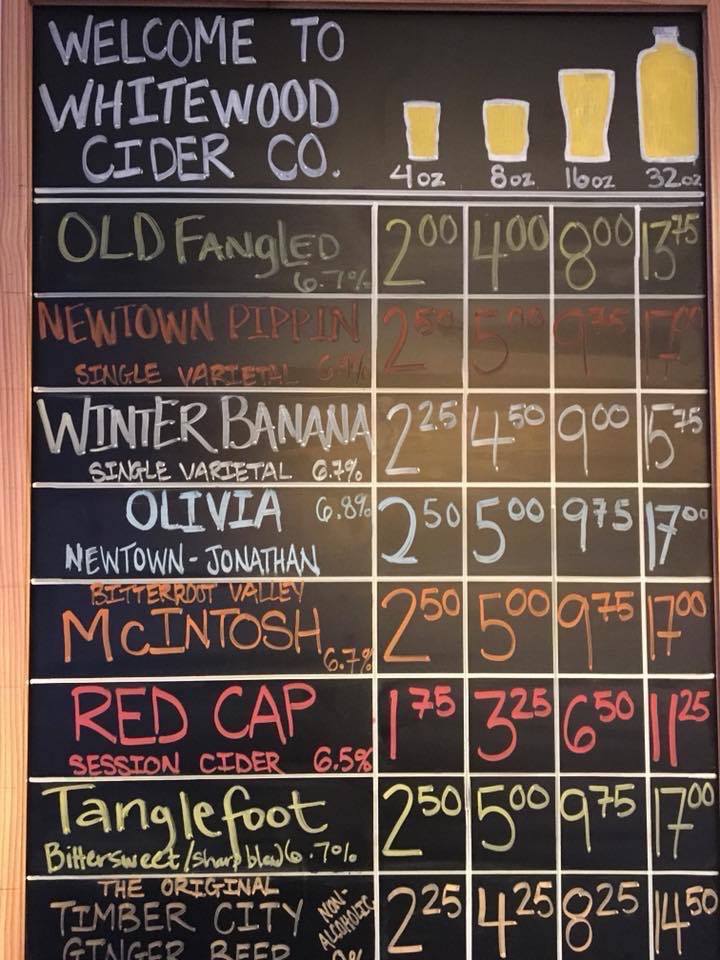 WELCOME TO
WHITEWOOD
CIDER CO.
4oz 8oz 16oz 32oz
OLD FANGLED 6.7% 2.00 4.00 8.00 13.75
NEWTOWN PIPPIN 2.50 5.00 9.75 17.00
SINGLE VARIETAL
WINTER BANANA 2.25 4.50 9.00 15.75
SINGLE VARIETAL 6.7%
OLIVIA 6.8% 2.50 5.00 9.75 17.00
NEWTOWN - JONATHAN
BITTERROOT VALLEY
McINTOSH 6.7% 2.50 5.00 9.75 17.00
RED CAP 1.75 3.25 6.50 11.25
SESSION CIDER 6.5%
Tanglefoot 2.50 5.00 9.75 17.00
Bittersweet/sharp blend 6.7%
THE ORIGINAL
TIMBER CITY NON-ALCOHOLIC 2.25 4.25 8.25 14.50
GINGER BEER 0%